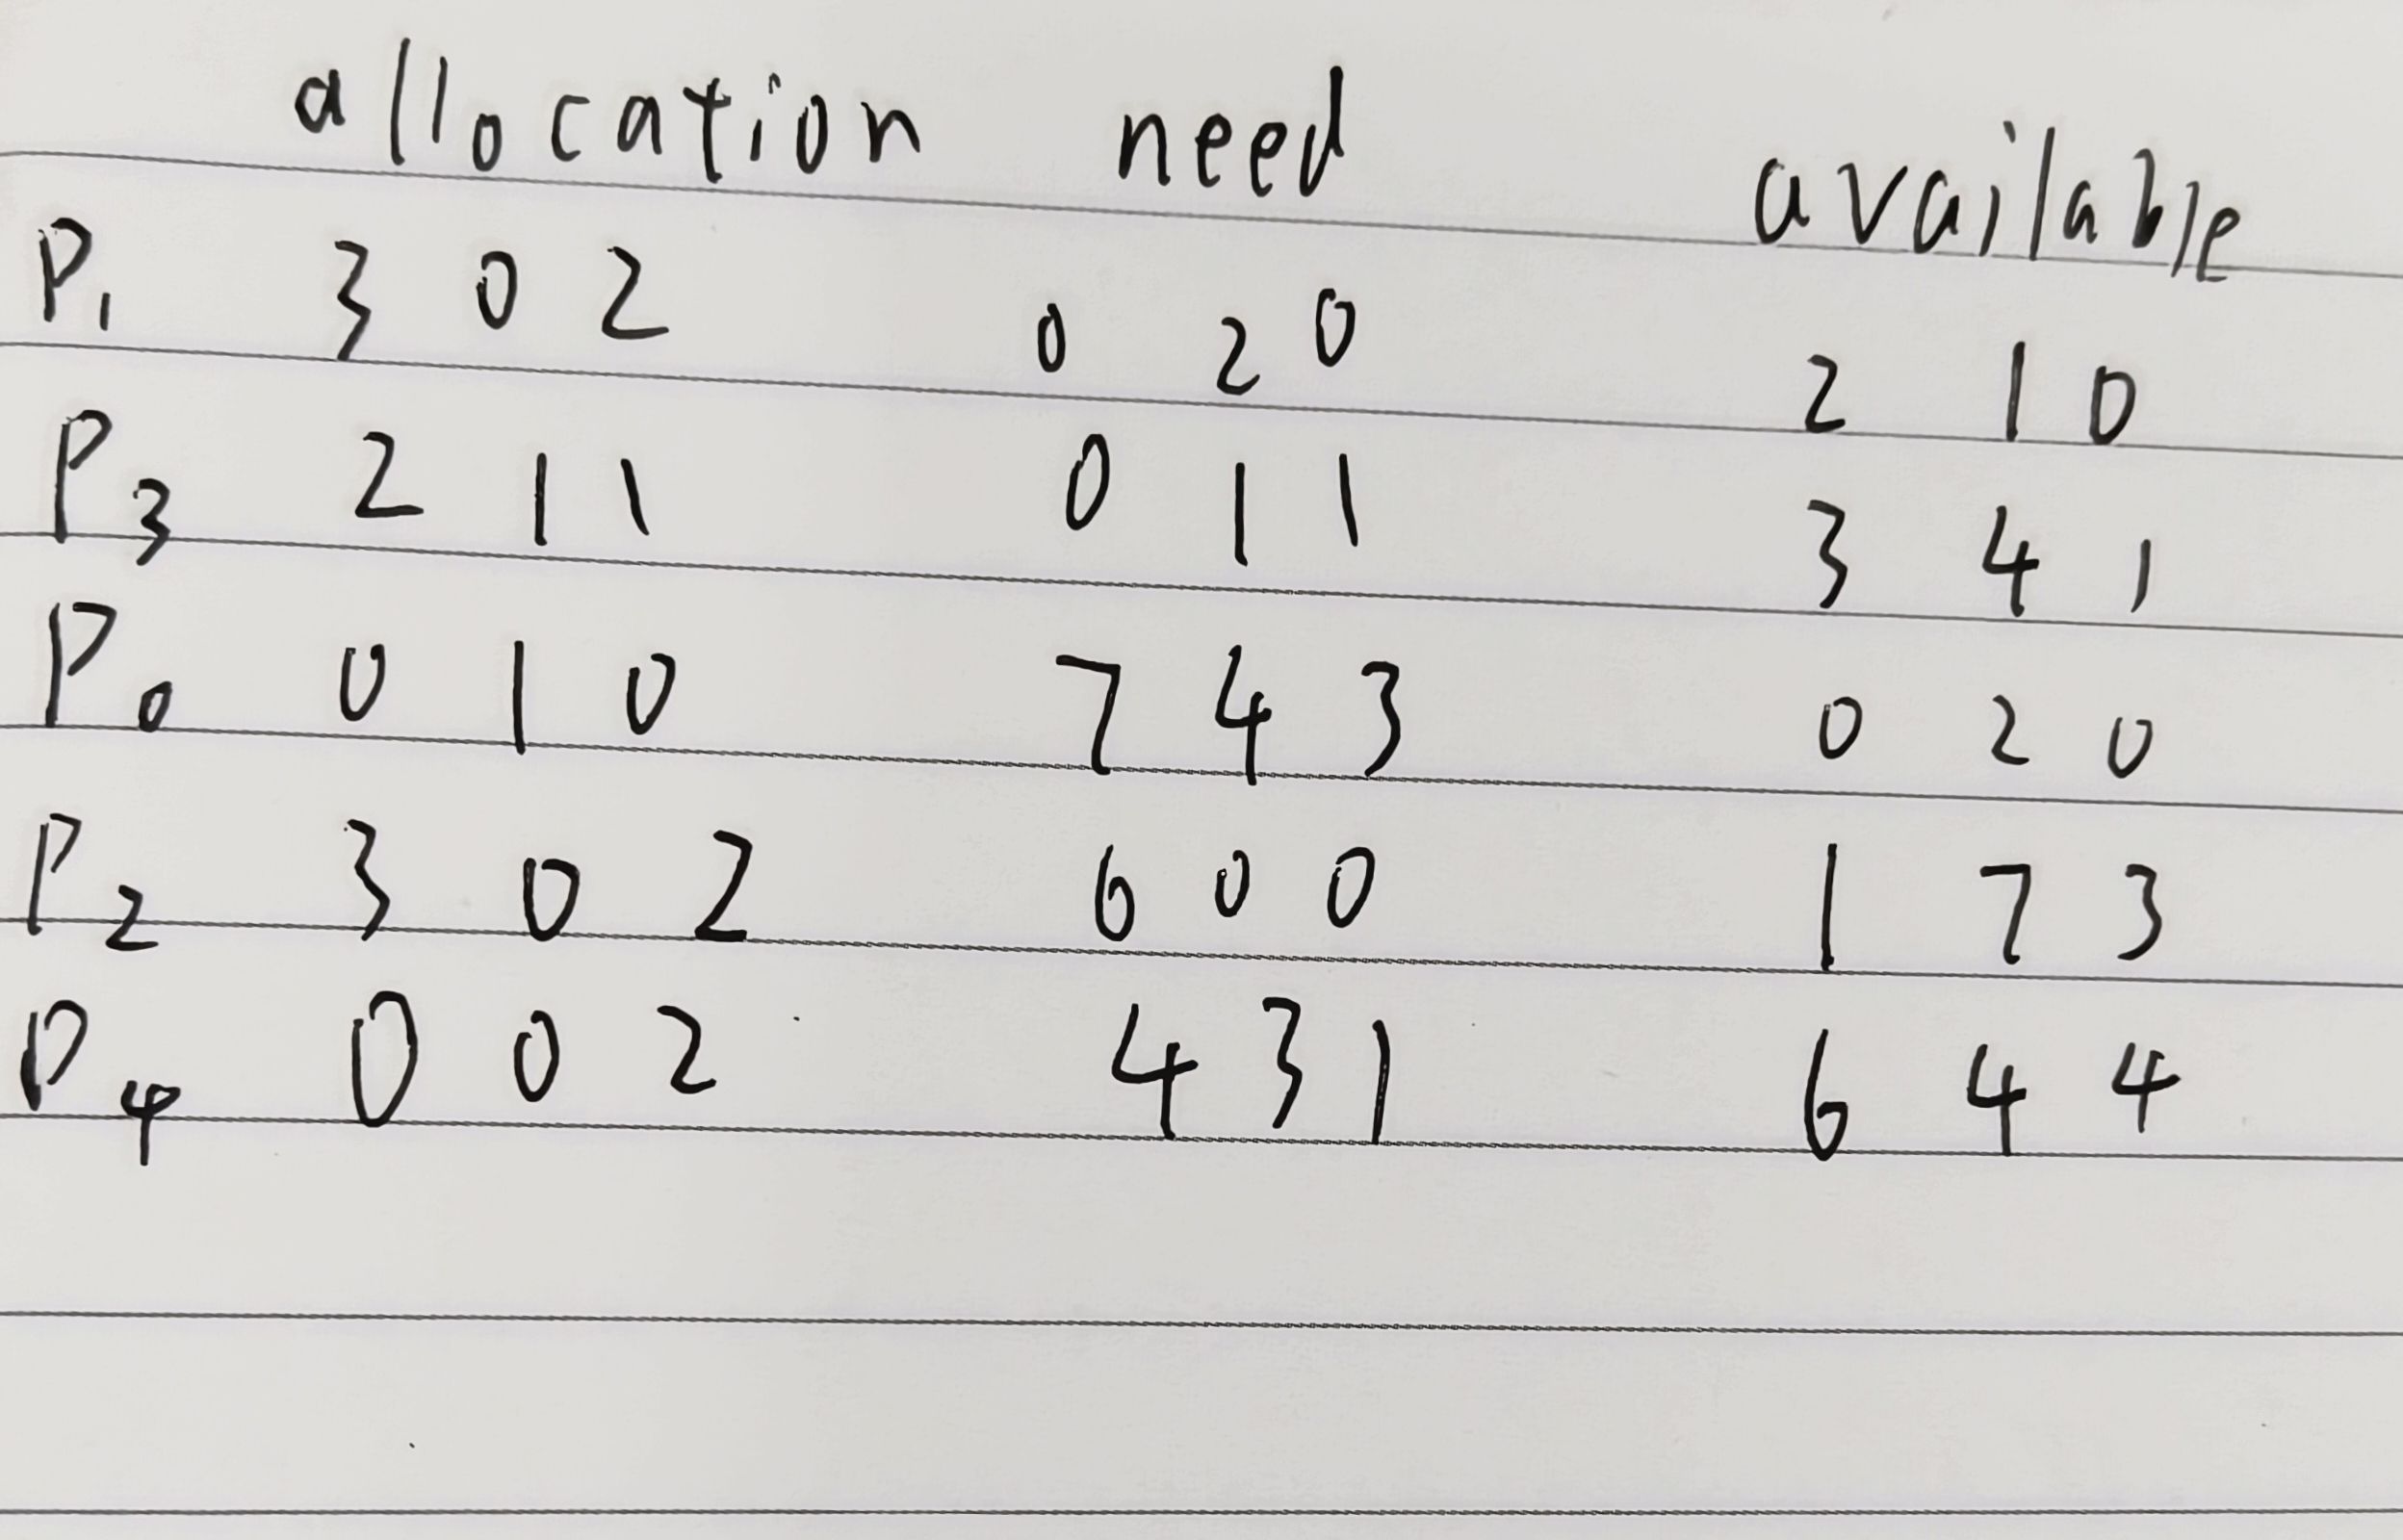 allocation need available
P1 3 0 2 0 2 0 2 1 0
P3 2 1 1 0 1 1 3 4 1
P0 0 1 0 7 4 3 0 2 0
P2 3 0 2 6 0 0 1 7 3
P4 0 0 2 4 3 1 6 4 4